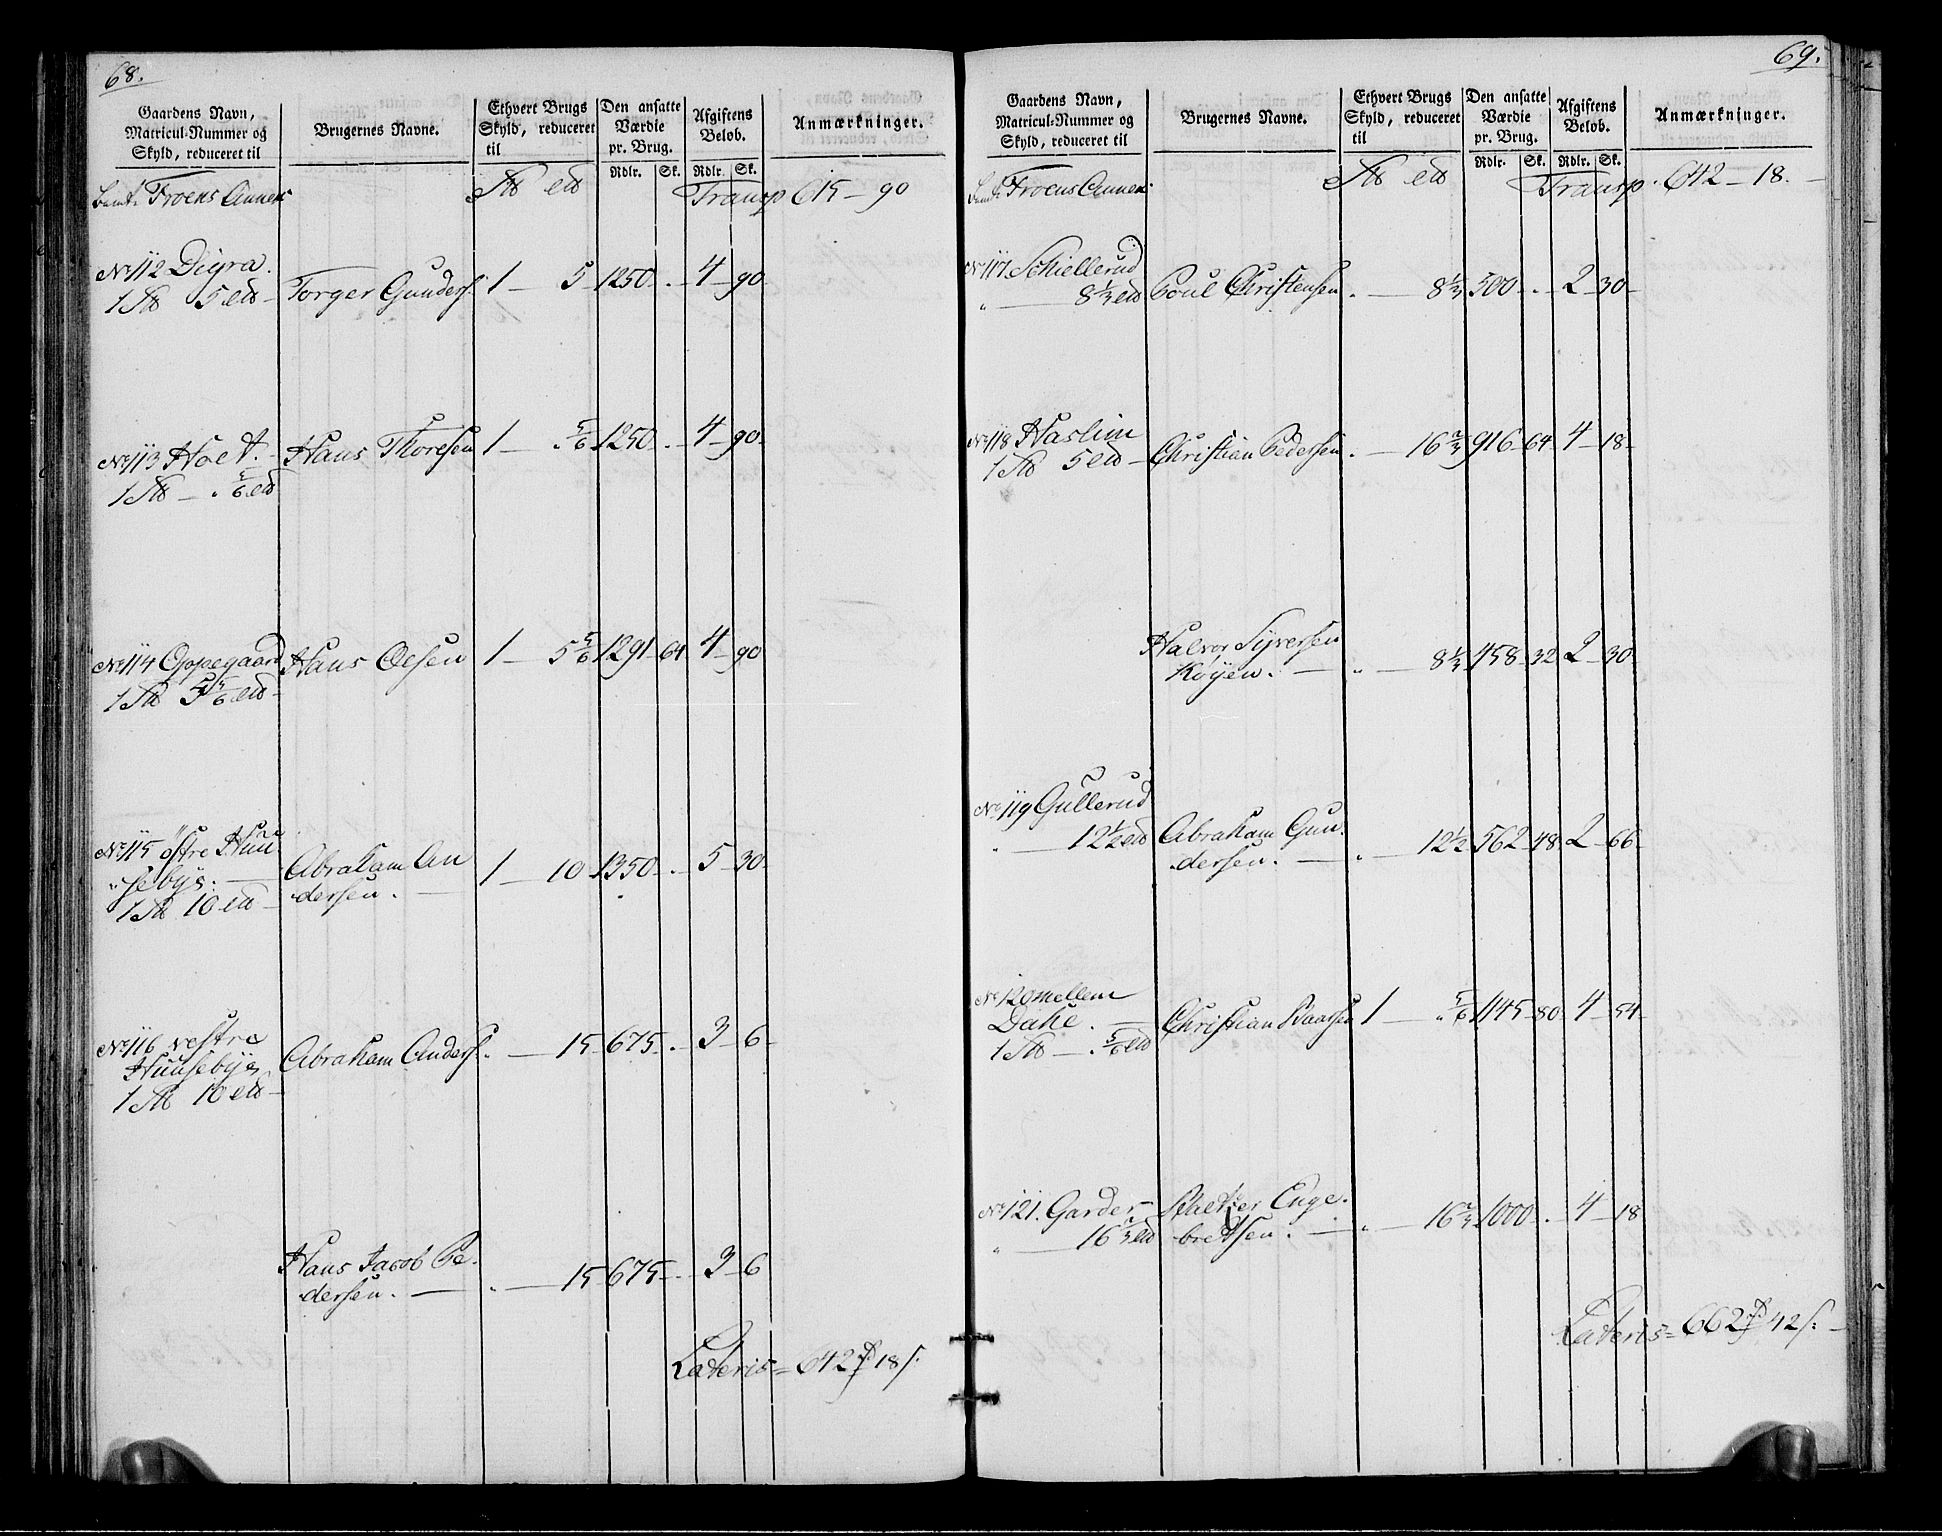 68.
Gaardens Navn,
Matricul-Nummer og
Skyld, reduceret til
Brugernes Navne.
Ethvert Brugs
Skyld, reduceret
til
Den ansatte
Værdie
pr. Brug.
Rdlr. Sk.
Afgiftens
Beløb.
Rdlr. Sk.
Anmærkninger.
Froens Annex
Transp 615 - 90
No 112 Digra.
1 5
Torger Gunders. 1 - 5 1250 - . - 4 - 90
No 113 Hoel.
1 - . 5/6
Hans Thoresen 1 - . 5/6 1250 - . - 4 - 90
No 114 Oppegaard
1 5 5/6
Hans Olsen 1 - 5 5/6 1291 - 64 4 - 90
No 115 østre Huu
sebÿe.
1 10
Abraham An
dersen. 1 - 10 1350 - . - 5 - 30
No 116 vestre
Huusebÿe
1 10
Abraham Anders. - 15 - 675 - . - 3 - 6
Hans Jacob Pe
dersen. - 15 - 675 - . - 3 - 6
Lateris = 642 18 s.
69.
Gaardens Navn,
Matricul-Nummer og
Skyld, reduceret til
Brugernes Navne.
Ethvert Brugs
Skyld, reduceret
til
Den ansatte
Værdie
pr. Brug.
Rdlr. Sk.
Afgiftens
Beløb.
Rdlr. Sk.
Anmærkninger.
Froens Annex
Transp. 642 - 18.
No 117. Schiellerud
" 8 1/3
Poul Christensen. - 8 1/3 500 - . - 2 - 30
No 118 Haslim
1 5
Christian Pedersen. - 16 2/3 916 - 64 4 - 18
Halvor Syversen
Køÿen. - 8 1/3 458 - 32 2 - 30
No 119 Gullerud
" 12 1/2
Abraham Gun
dersen. - 12 1/2 562 - 48 2 - 66
No 120 mellem
Dahl.
1 - . 5/6
Christian 1 - " 5/6 1145 - 80 4 - 54
No 121. Garder
" 16 2/3
Enge
bretsen. - 16 2/3 1000 - . - 4 - 18
Lateris = 662 42 s.